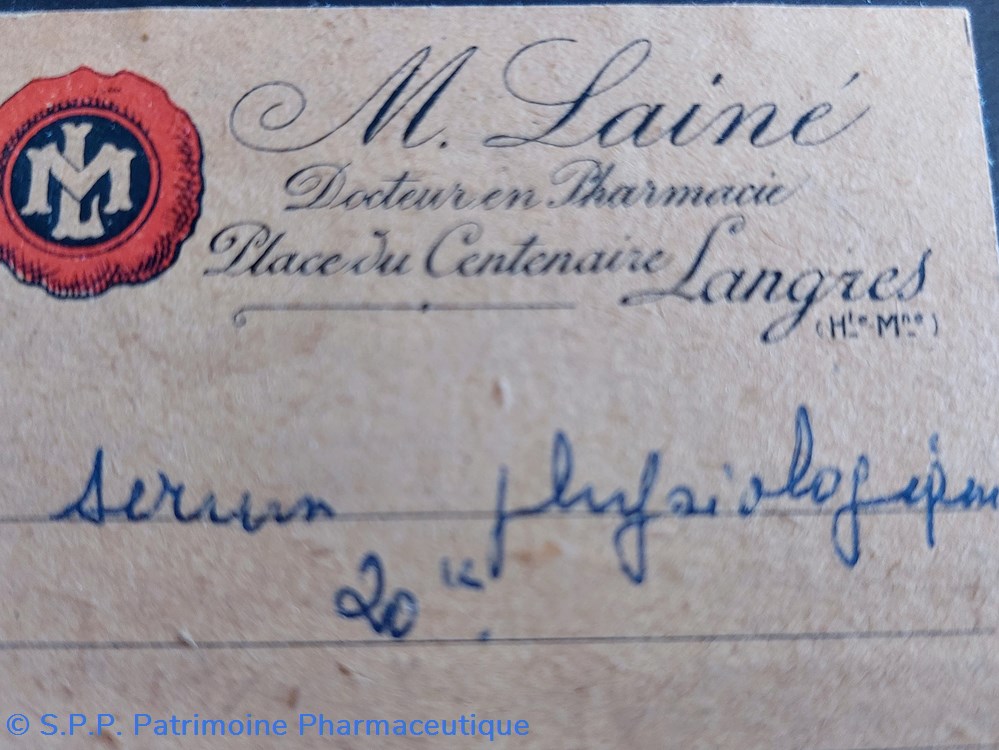 ML
M. Lainé
Docteur en Pharmacie
Place du Centenaire Langres
(Hte-Mne)
serum physiologique
20
© S.P.P. Patrimoine Pharmaceutique